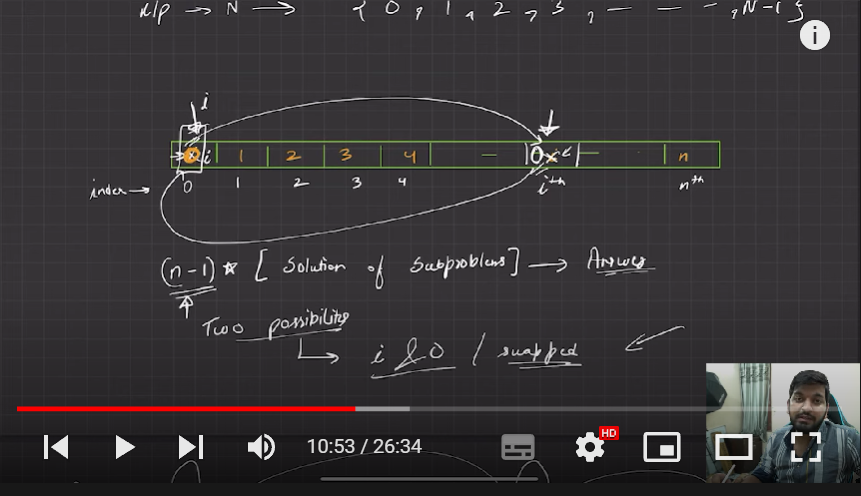 i/p → N → { 0, 1, 2, 3, — — —, N-1 }
i
i 1 2 3 4 — 0 — n
index → 0 1 2 3 4 i th n th
(n-1) * [ Solution of Subproblems ] → Answer
Two possibilities
i & 0 / swapped
10:53 / 26:34
HD